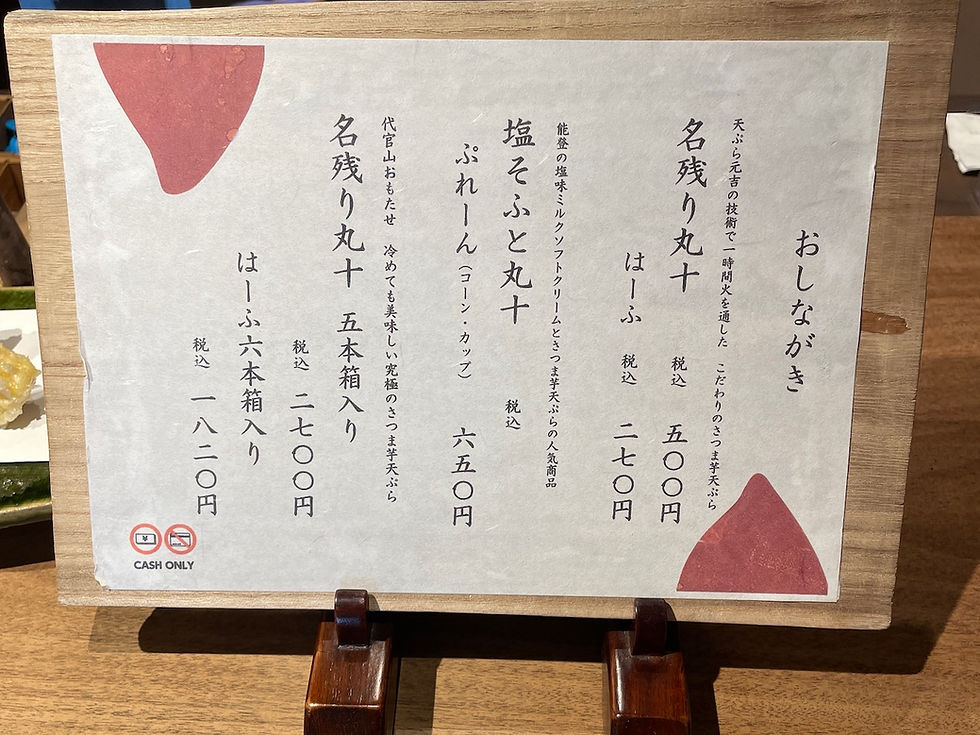 おしながき
天ぷら元吉の技術で一時間火を通した こだわりのさつま芋天ぷら
名残り丸十 税込 五〇〇円
はーふ 税込 二七〇円
能登の塩味ミルクソフトクリームとさつま芋天ぷらの人気商品
塩そふと丸十 税込
ぷれーん（コーン・カップ） 六五〇円
代官山おもたせ 冷めても美味しい究極のさつま芋天ぷら
名残り丸十 五本箱入り
税込 二七〇〇円
はーふ六本箱入り
税込 一八二〇円
CASH ONLY